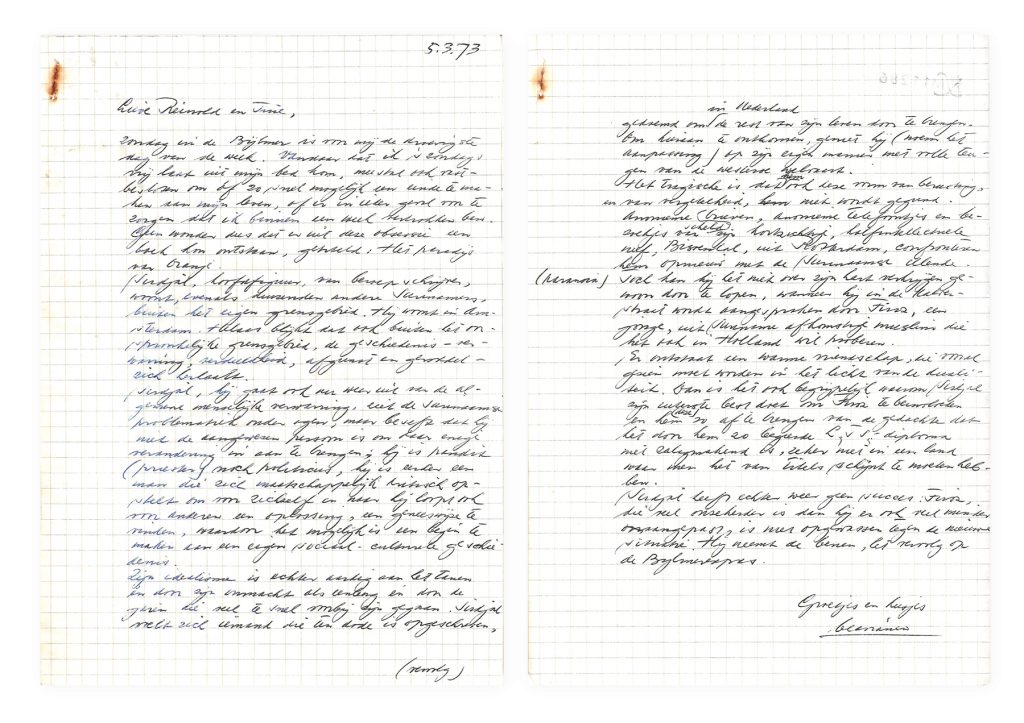 5.3.73
Lieve Reinold en Tine,
zondag in de Bijlmer is voor mij de droevigste
dag van de week. Vandaar dat ik 's zondags
vrij laat uit mijn bed kom, meestal ook vast-
besloten om òf zo snel mogelijk een einde te ma-
ken aan mijn leven, of er in ieder geval voor te
zorgen dat ik binnen een week vertrokken ben.
Geen wonder dus dat er uit deze obsessie een
boek kon ontstaan, getiteld: Het paradijs
van Oranje.
Sirdjal, hoofdfiguur, van beroep schrijver,
woont, evenals duizenden andere Surinamers,
buiten het eigen grensgebied. Hij woont in Am-
sterdam. Helaas blijkt dat ook buiten het oor-
spronkelijke grensgebied, de geschiedenis - ver-
warring, verdeeldheid, afgunst en geroddel -
zich herhaalt.
Sirdjal, hij gaat ook nu weer uit van de al-
gemene menselijke verwarring, uit de Surinaamse
problematiek onder ogen, maar beseft dat hij
niet de aangewezen persoon is om daar enige
verandering in aan te brengen; hij is pandit
(priester) noch politicus, hij is eerder een
man die zich maatschappelijk kritisch op-
stelt om voor zichzelf en naar hij loopt ook
voor anderen een oplossing, een geneeswijze te
vinden, waardoor het mogelijk is een begin te
maken aan een eigen sociaal-culturele geschie-
denis.
Zijn idealisme is echter aardig aan het tanen
en door zijn onmacht als eenling en door de
jaren die veel te snel voorbij zijn gegaan. Sirdjal
voelt zich iemand die ten dode is opgeschreven,
(vervolg)
in Nederland
gedoemd om de rest van zijn leven door te brengen.
Om hieraan te ontkomen, geniet hij (noem het
aanpassing) op zijn eigen manier met volle teu-
gen van de westerse welvaart.
Het tragische is dat hem ook deze vorm van berusting,
en van vergetelheid, niet wordt gegund.
Anonieme brieven, anonieme telefoontjes en be-
zoekjes van zijn scheld, halfintellectuele
neef, Bisoendal, uit Rotterdam, confronteren
hem opnieuw met de Surinaamse ellende.
(paranoia) Toch kan hij het niet over zijn hart verkrijgen ge-
woon door te lopen, wanneer hij in de Kalver-
straat wordt aangesproken door Firoz, een
jonge, uit Suriname afkomstige moeslim die
het ook in Holland wil proberen.
Er ontstaat een warme vriendschap, die vooral
gezien moet worden in het licht van de duali-
teit. Dan is het ook begrijpelijk waarom Sirdjal
zijn uiterste best doet om Firoz te beïnvloeden
en hem zo af te brengen van de gedachte dat
het door hem zo begeerde L.T.S. diploma
niet zaligmakend is, zeker niet in een land
waar men het van titels schijnt te moeten heb-
ben.
Sirdjal heeft echter weer geen succes. Firoz,
die veel onzekerder is dan hij en ook veel minder
onaangepast, is niet opgewassen tegen de nieuwe
situatie. Hij neemt de benen, het vervolg op
de Bijlmerexpres.
Groetjes en kusjes